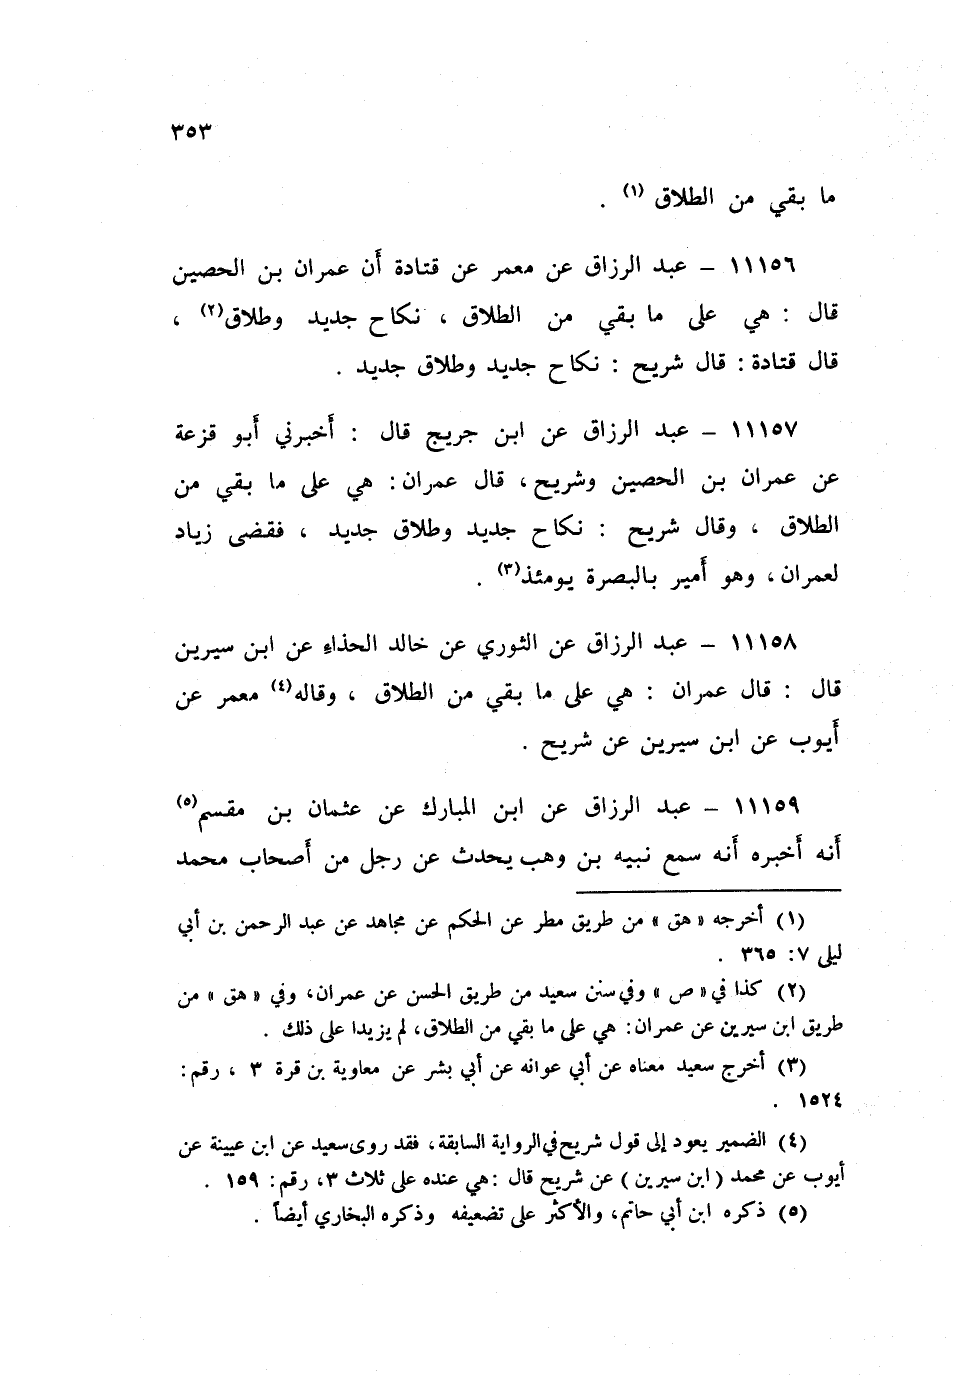 ٣٥٣
ما بقي من الطلاق (١) .
١١١٥٦ – عبد الرزاق عن معمر عن قتادة أَن عمران بن الحصين
قال : هي على ما بقي من الطلاق ، نكاح جديد وطلاق(٢) ،
قال قتادة : قال شريح : نكاح جديد وطلاق جديد .
١١١٥٧ – عبد الرزاق عن ابن جريج قال : أَخبرني أَبو قزعة
عن عمران بن الحصين وشريح ، قال عمران : هي على ما بقي من
الطلاق ، وقال شريح : نكاح جديد وطلاق جديد ، فقضى زياد
لعمران ، وهو أَمير بالبصرة يومئذ(٣) .
١١١٥٨ – عبد الرزاق عن الثوري عن خالد الحذاءِ عن ابن سيرين
قال : قال عمران : هي على ما بقي من الطلاق ، وقاله(٤) معمر عن
أَيوب عن ابن سيرين عن شريح .
١١١٥٩ – عبد الرزاق عن ابن المبارك عن عثمان بن مقسم(٥)
أَنه أَخبره أَنه سمع نبيه بن وهب يحدث عن رجل من أَصحاب محمد
(١) أخرجه « هق » من طريق مطر عن الحكم عن مجاهد عن عبد الرحمن بن أبي
ليلى ٧: ٣٦٥ .
(٢) كذا في « ص » وفي سنن سعيد من طريق الحسن عن عمران، وفي « هق » من
طريق ابن سيرين عن عمران : هي على ما بقي من الطلاق، لم يزيدا على ذلك .
(٣) أخرج سعيد معناه عن أبي عوانه عن أبي بشر عن معاوية بن قرة ٣ ، رقم :
١٥٢٤ .
(٤) الضمير يعود إلى قول شريح في الرواية السابقة، فقد روى سعيد عن ابن عيينة عن
أيوب عن محمد ( ابن سيرين ) عن شريح قال : هي عنده على ثلاث ٣، رقم : ١٥٩ .
(٥) ذكره ابن أبي حاتم، والأكثر على تضعيفه وذكره البخاري أيضاً .